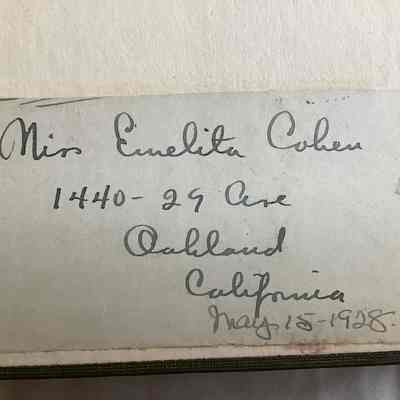 Miss Emelita Cohen
1440-29 Ave
Oakland
California
May. 15-1928.